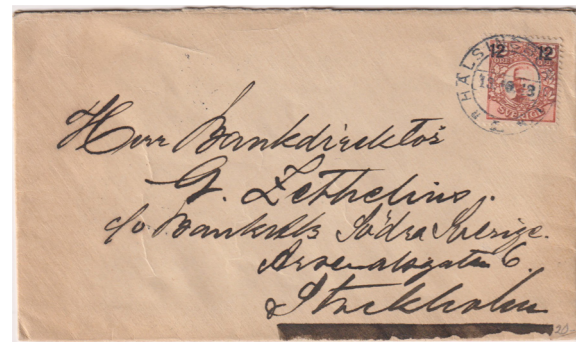 12 12
SVERIGE
Herr Bankdirektör
G. Zethelius.
c/o Bankab Södra Sverige.
Arsenalsgatan 6.
Stockholm
20-